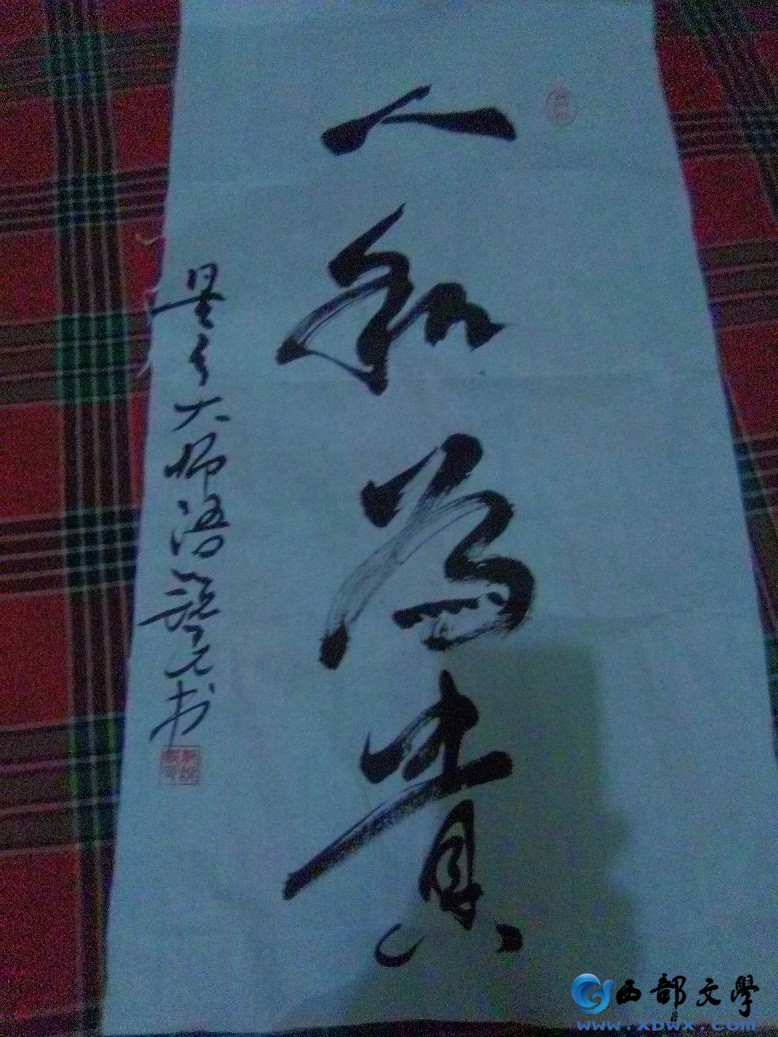 人和為貴
星云大师语 锐元书
西部文學
www.xbwx.com